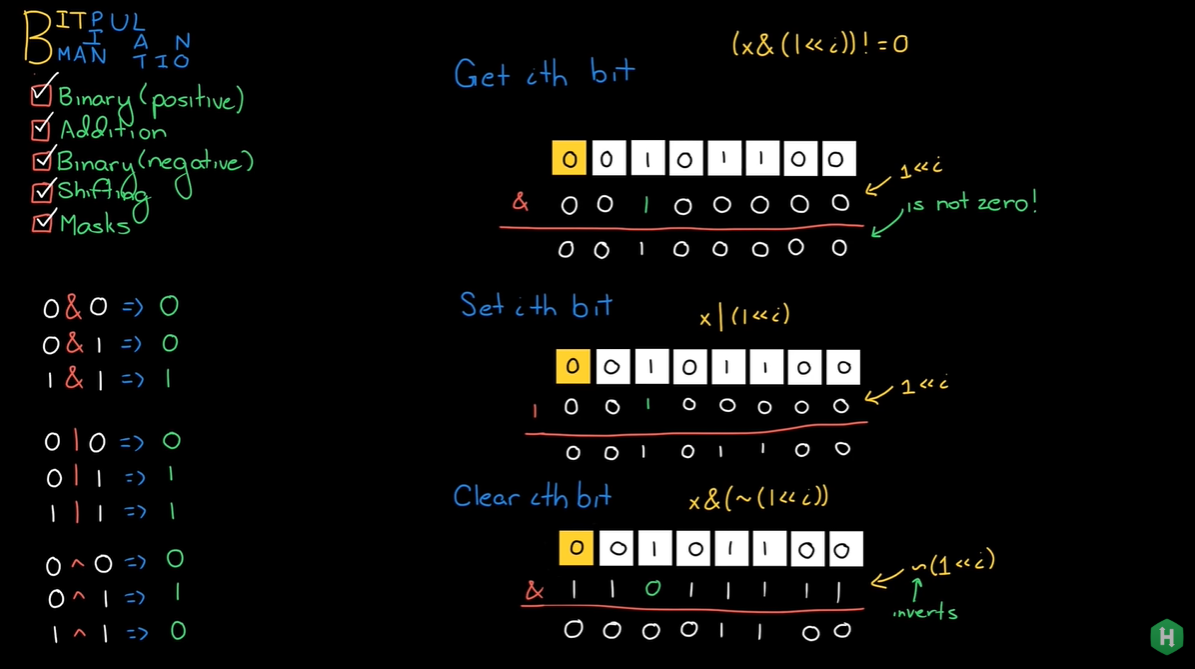 BITPUL
I A N
MAN TIO
Binary (positive)
Addition
Binary (negative)
Shifting
Masks
0 & 0 => 0
0 & 1 => 0
1 & 1 => 1
0 | 0 => 0
0 | 1 => 1
1 | 1 => 1
0 ^ 0 => 0
0 ^ 1 => 1
1 ^ 1 => 0
Get ith bit
(x&(1<<i))!=0
0 0 1 0 1 1 0 0
& 0 0 1 0 0 0 0 0
1<<i
is not zero!
0 0 1 0 0 0 0 0
Set ith bit
x|(1<<i)
0 0 1 0 1 1 0 0
| 0 0 1 0 0 0 0 0
1<<i
0 0 1 0 1 1 0 0
Clear ith bit
x&(~(1<<i))
0 0 1 0 1 1 0 0
& 1 1 0 1 1 1 1 1
~(1<<i)
inverts
0 0 0 0 1 1 0 0
H